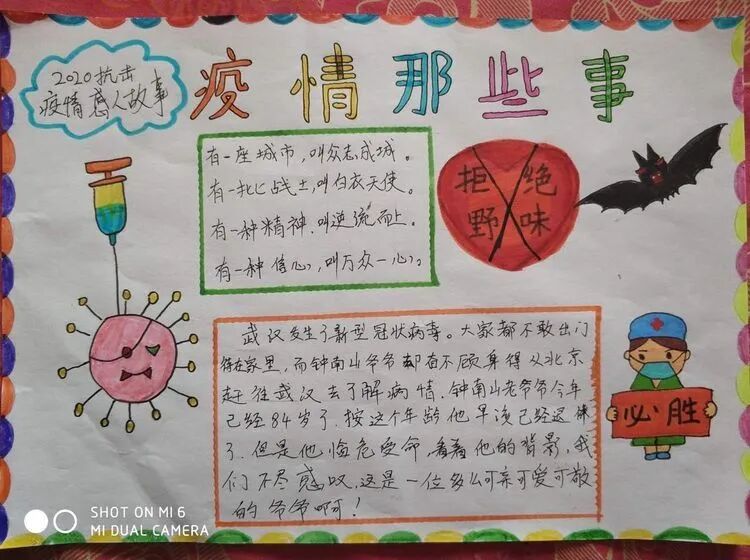 2020抗击
疫情感人故事
疫情那些事
有一座城市,叫众志成城。
有一批战士,叫白衣天使。
有一种精神.叫逆流而上。
有一种信心,叫万众一心,
拒绝
野味
武汉发生了新型冠状病毒。大家都不敢出门
待在家里,而钟南山爷爷却奋不顾身得从北京
赶往武汉去了解病情.钟南山老爷爷今年
已经84岁了.按这个年龄他早该已经退休
了.但是他临危受命,看着他的背影,我
们不尽感叹.这是一位多么可亲可爱可敬
的爷爷啊!
必胜
SHOT ON MI 6
MI DUAL CAMERA